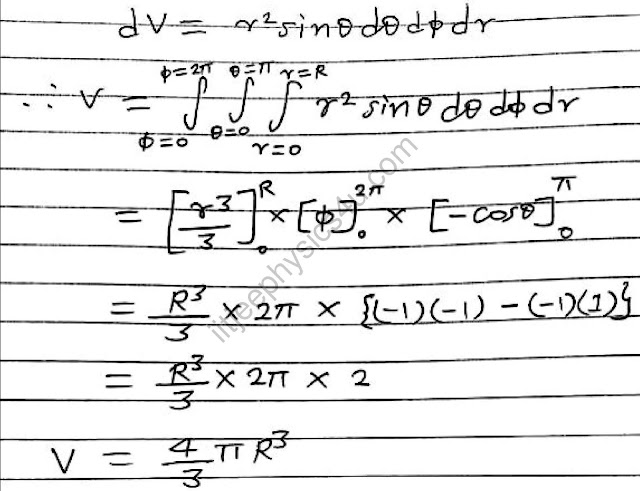 dV = r² sinθ dθ dϕ dr
∴ V = ∫_{ϕ=0}^{ϕ=2π} ∫_{θ=0}^{θ=π} ∫_{r=0}^{r=R} r² sinθ dθ dϕ dr
= [r³/3]₀^R × [ϕ]₀^{2π} × [-cosθ]₀^π
= R³/3 × 2π × {(-1)(-1) - (-1)(1)}
= R³/3 × 2π × 2
V = 4/3 π R³
iitjeephysics4u.com